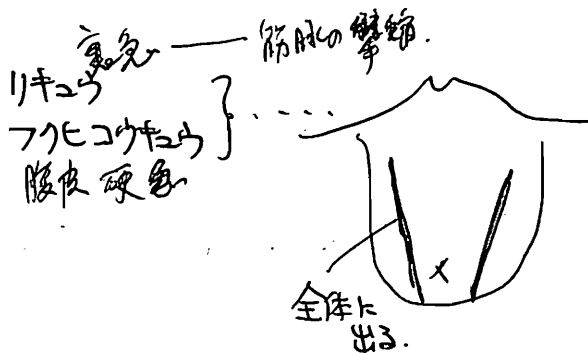 裏急 ── 筋肉の攣縮.
リキュウ
フクヒコウキュウ
腹皮硬急
全体に
出る.